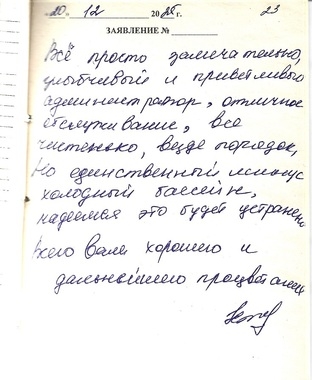 "20" 12 2025 г. 23
ЗАЯВЛЕНИЕ №
Всё просто замечательно,
улыбчивый и приветливый
администратор, отличное
обслуживание, все
чистенько, везде порядок,
Но единственный минус
холодный бассейн,
надеемся это будет устранено
Всего Вам хорошего и
дальнейшего процветания